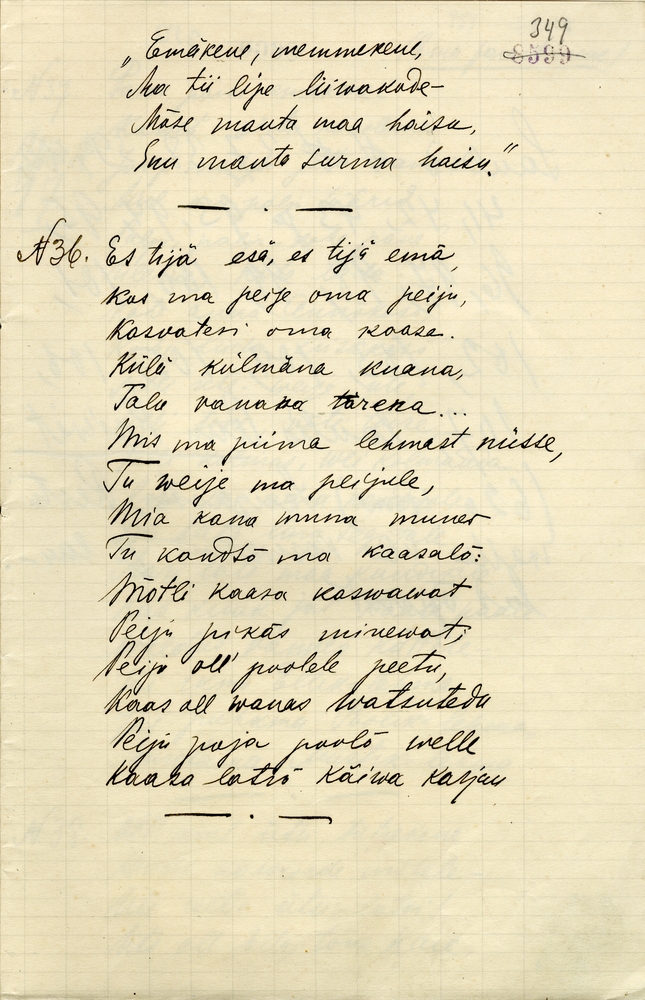 349
8599
„Emäkene, memmekene,
Ma tii lipe liiwakode-
Mõse manta maa haisu,
Enu manta surma haisu."
N 36. Es tijä esä, es tijä emä,
Kos ma peije oma peiju,
Kasvatesi oma kaasa.
Külä külmäna kuana,
Talu vanana tarena...
Mis ma piima lehmast nüsse,
Tu weije ma peijule,
Mia kana muna munes
Tu kandsõ ma kaasalõ:
Mõtli kaasa kaswawat
Peiju pikäs minewat;
Peiju oll' poolele peetu,
Kaas oll wanas watsutedu
Peiju poja poolõ welle
Kaasa latsõ käiwa karjan